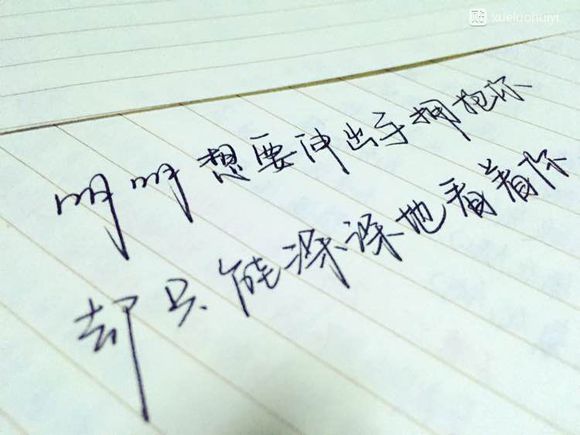 xueluohuiyi
明明想要伸出手拥抱你
却只能深深地看着你